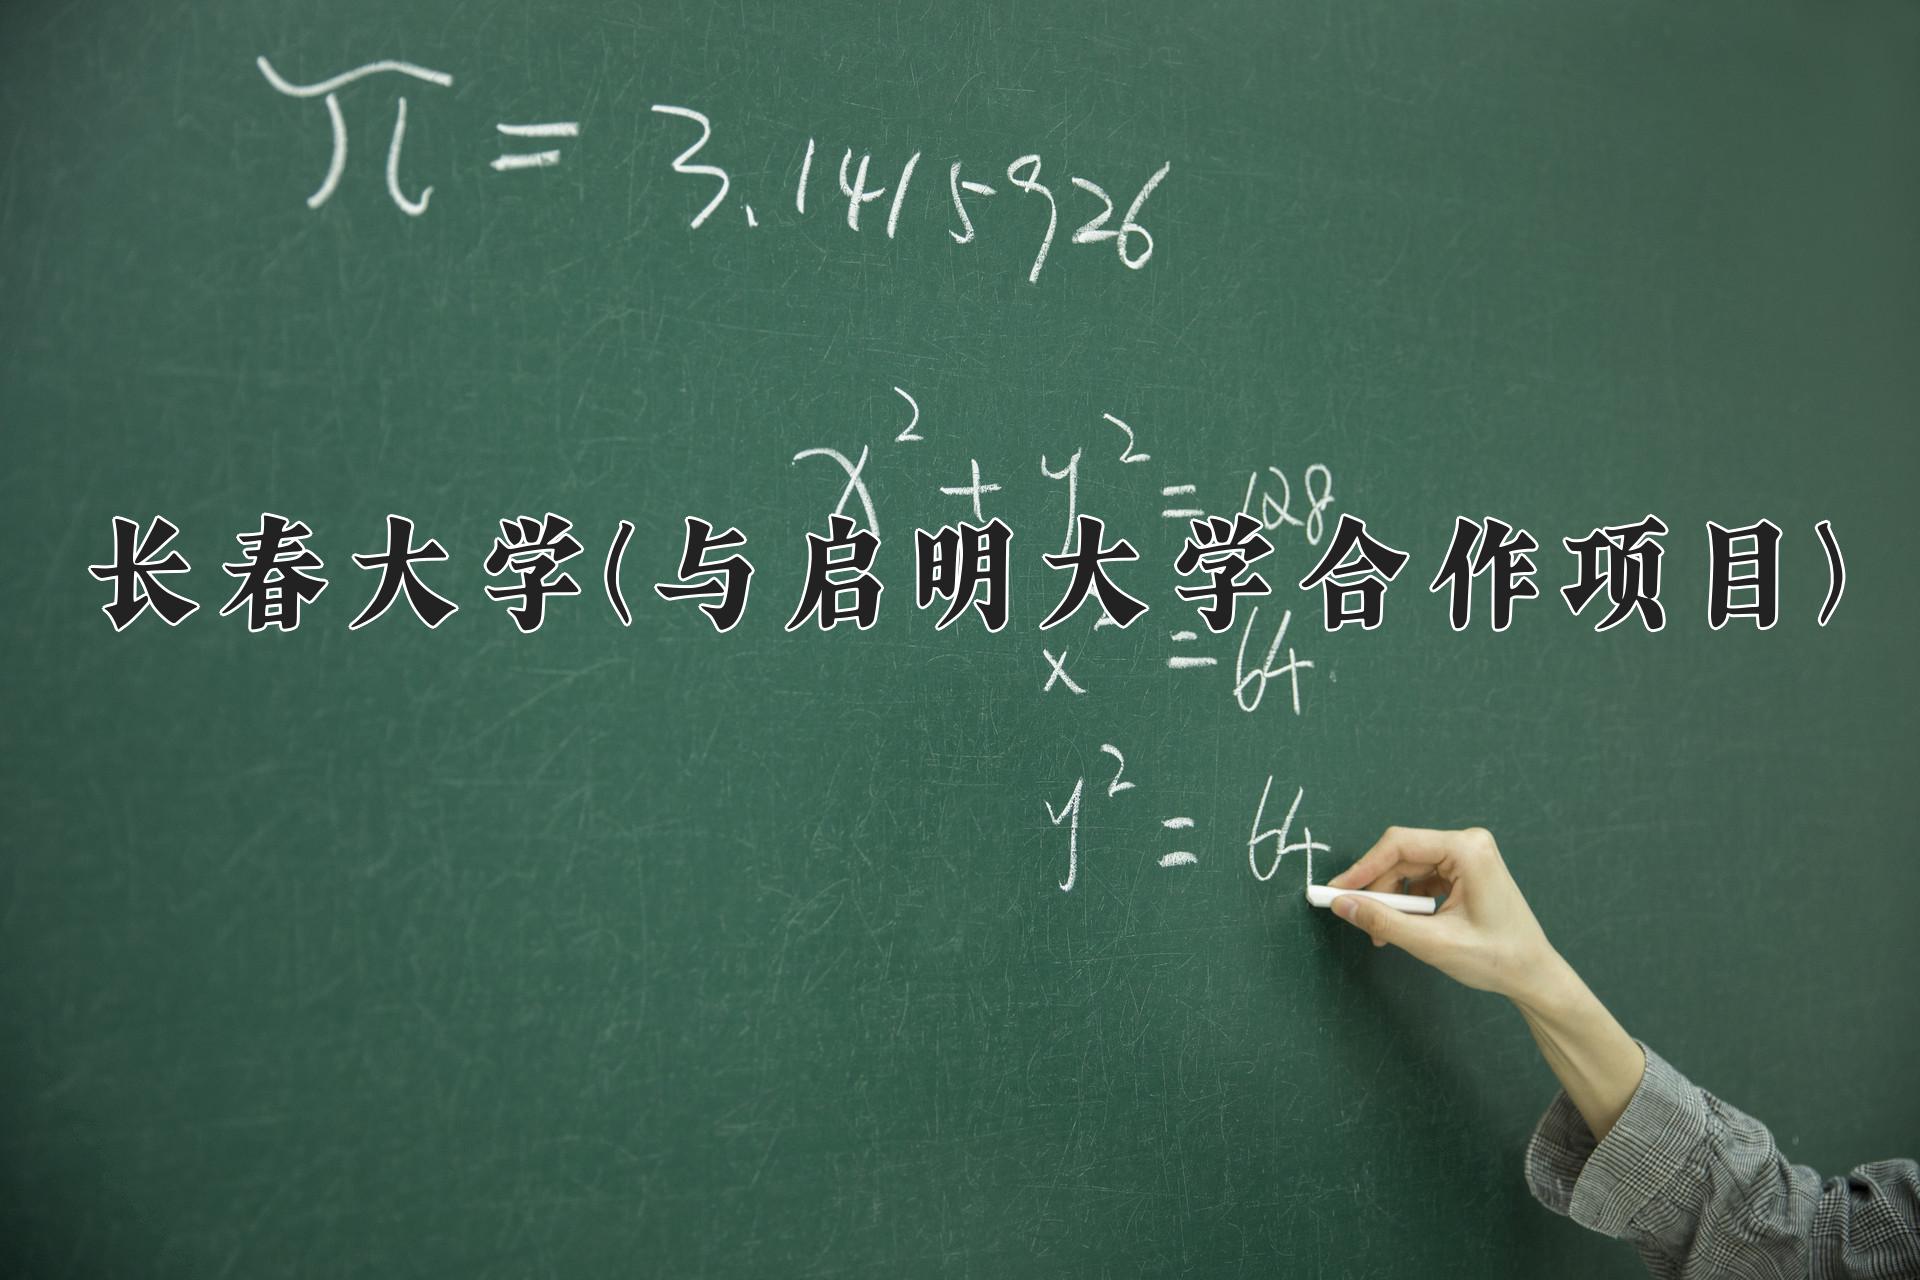 π = 3.1415926
x² + y² = 128
长春大学(与启明大学合作项目)
x² = 64
y² = 64